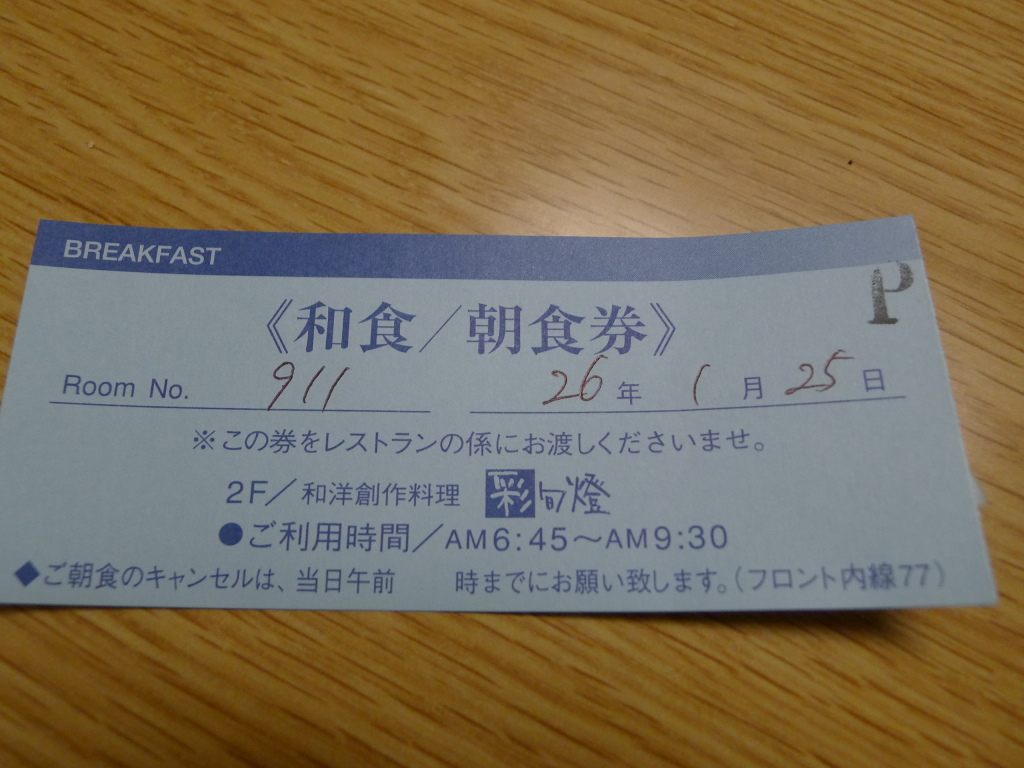 BREAKFAST
P
《和食/朝食券》
Room No. 911 26年 1月 25日
※この券をレストランの係にお渡しくださいませ。
2F/和洋創作料理 彩旬燈
●ご利用時間/AM6:45～AM9:30
◆ご朝食のキャンセルは、当日午前 時までにお願い致します。(フロント内線77)